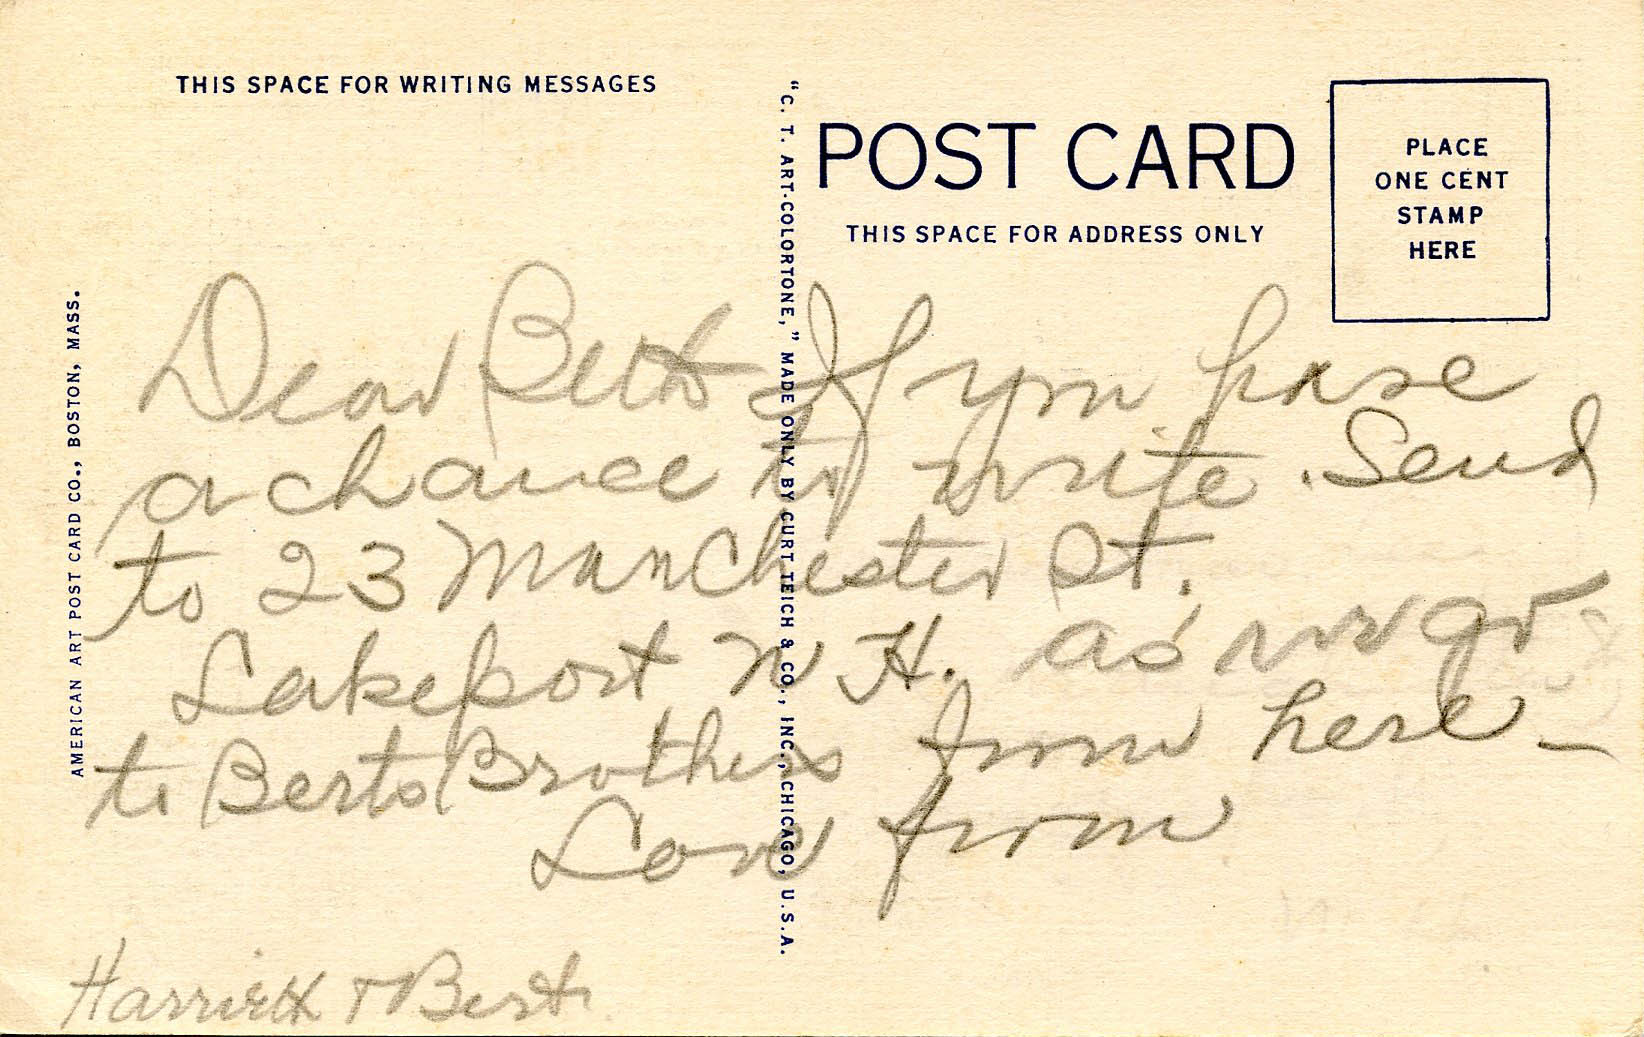 THIS SPACE FOR WRITING MESSAGES
POST CARD
THIS SPACE FOR ADDRESS ONLY
PLACE
ONE CENT
STAMP
HERE
AMERICAN ART POST CARD CO., BOSTON, MASS.
"C. T. ART-COLORTONE," MADE ONLY BY CURT TEICH & CO., INC., CHICAGO, U.S.A.
Dear Beth If you have
a chance to write. Send
to 23 Manchester St.
Lakeport N H. as we go
to Berts Brothers from here_
Love from
Harriett + Bert.